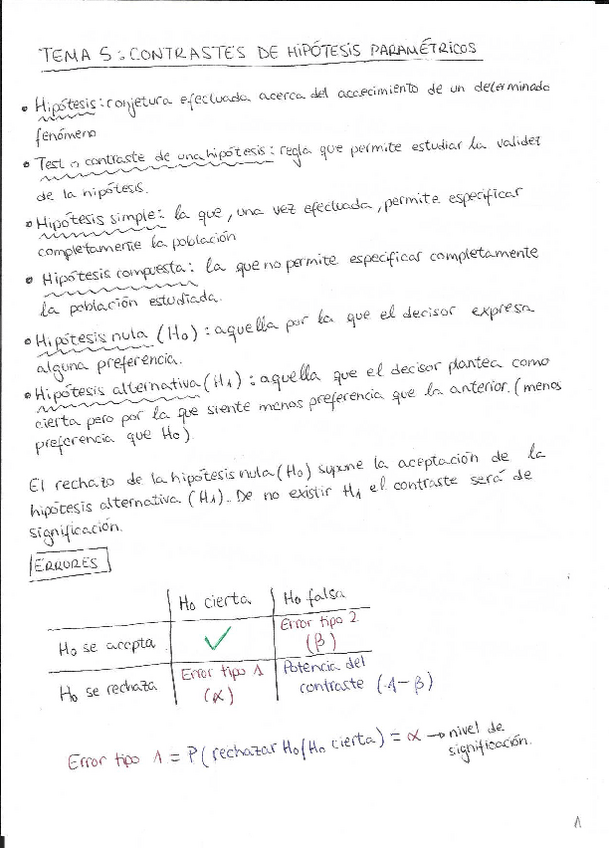 TEMA 5: CONTRASTES DE HIPÓTESIS PARAMÉTRICOS
• Hipótesis: conjetura efectuada acerca del acaecimiento de un determinado
fenómeno
• Test o contraste de una hipótesis: regla que permite estudiar la validez
de la hipótesis.
• Hipótesis simple: la que, una vez efectuada, permite especificar
completamente la población
• Hipótesis compuesta: la que no permite especificar completamente
la población estudiada.
• Hipótesis nula (H₀): aquella por la que el decisor expresa
alguna preferencia.
• Hipótesis alternativa (H₁): aquella que el decisor plantea como
cierta pero por la que siente menos preferencia que la anterior. (menos
preferencia que H₀)
El rechazo de la hipótesis nula (H₀) supone la aceptación de la
hipótesis alternativa (H₁). De no existir H₁ el contraste será de
significación.
ERRORES
H₀ cierta H₀ falsa
H₀ se acepta ✓ Error tipo 2 (β)
H₀ se rechaza Error tipo 1 (α) Potencia del contraste (1-β)
Error tipo 1 = P(rechazar H₀/H₀ cierta) = α → nivel de
significación.
1